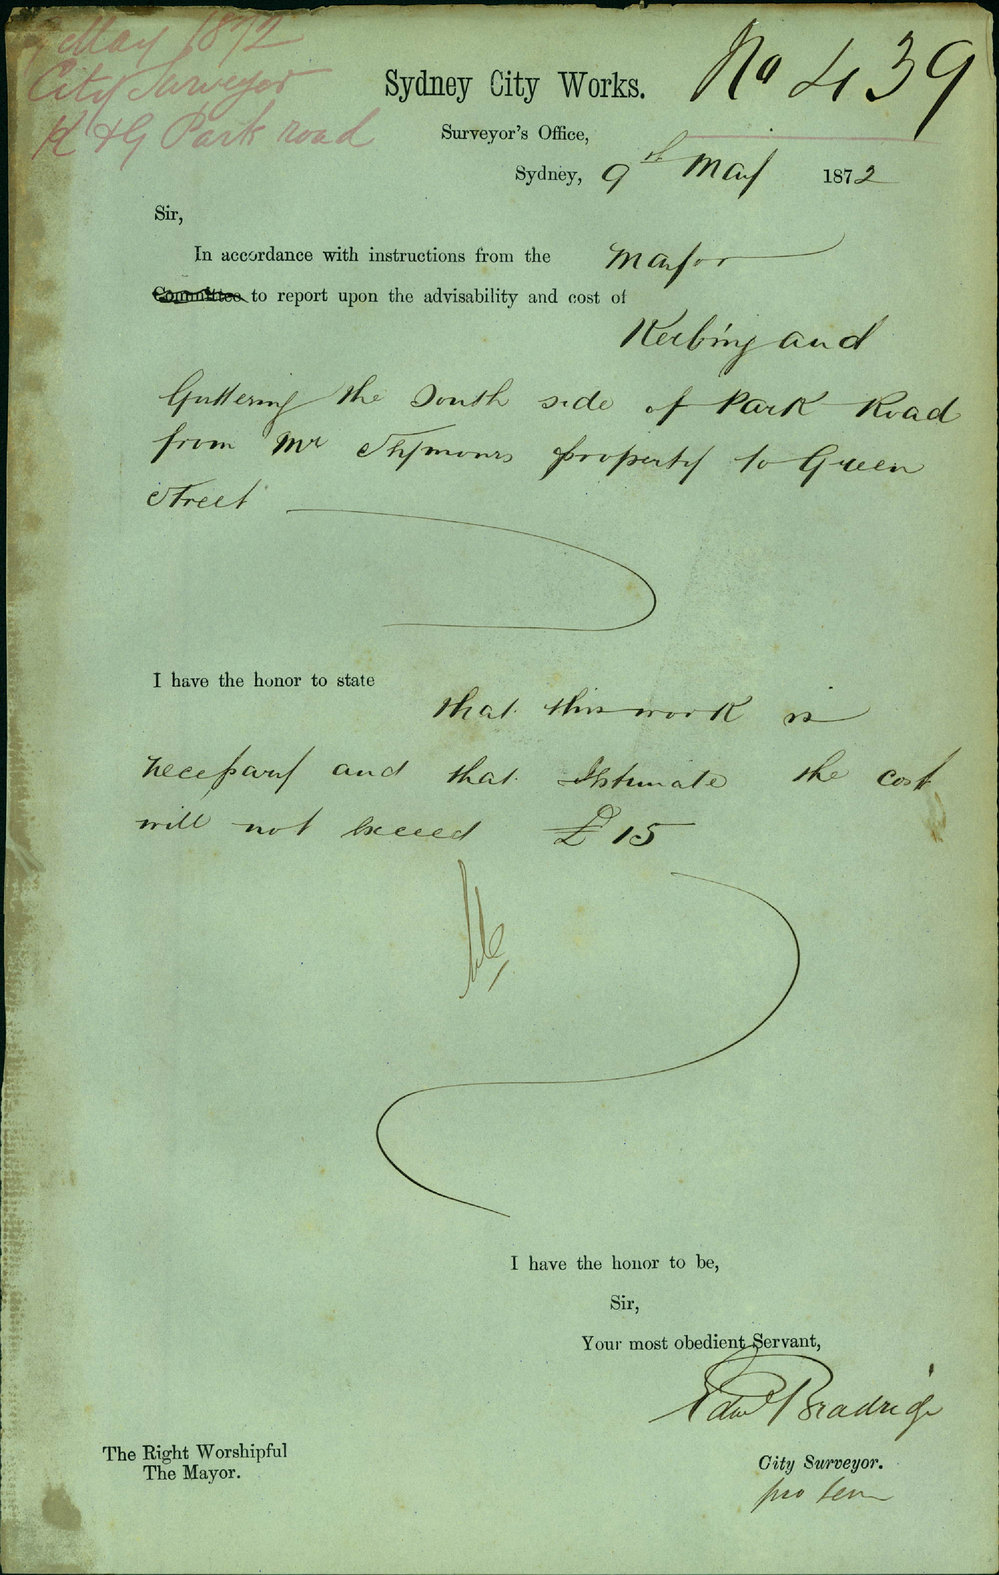 9 May 1872
City Surveyor
K & G Park road
No 439
Sydney City Works.
Surveyor's Office,
Sydney, 9th May 1872
Sir,
In accordance with instructions from the Mayor
Committee to report upon the advisability and cost of
Kerbing and
Guttering the South side of Park Road
from Mr property to Green
Street
I have the honor to state
that this work is
necessary and that I estimate the cost
will not exceed £15
I have the honor to be,
Sir,
Your most obedient Servant,
Edwd Bradridge
The Right Worshipful
The Mayor.
City Surveyor.
pro tem